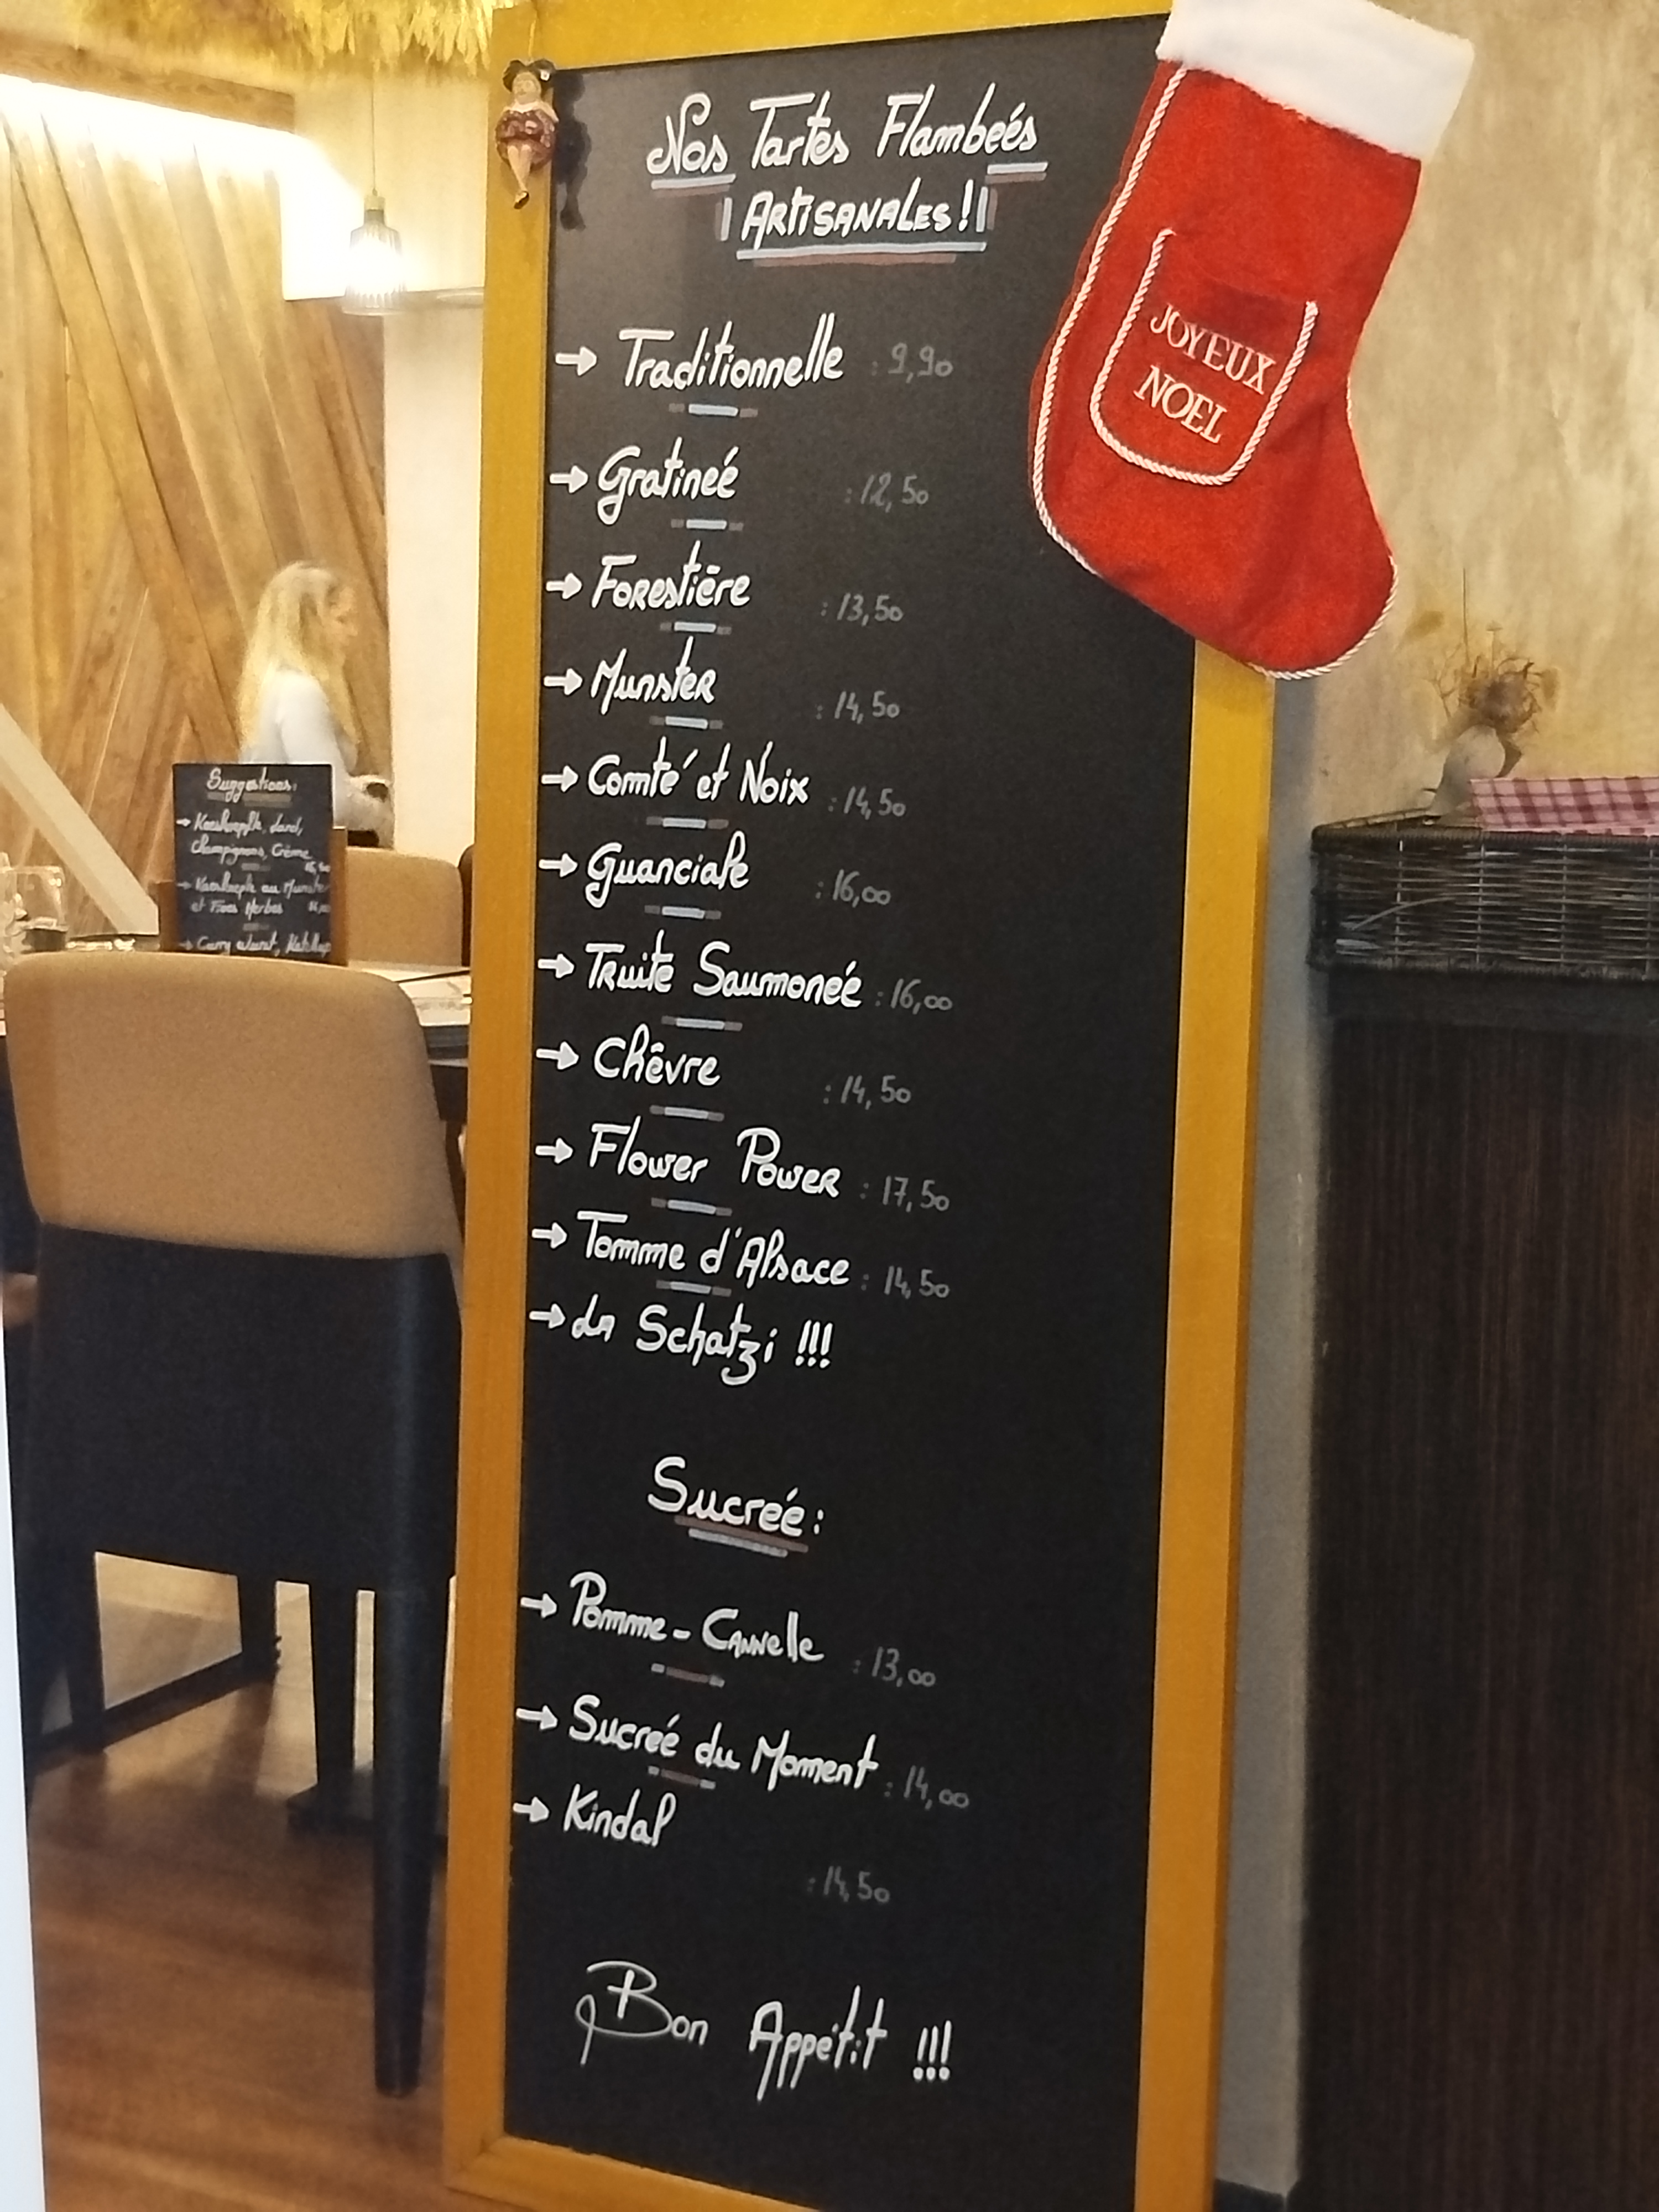 Nos Tartes Flambeés
ARTISANALES !
→ Traditionnelle : 9,90
→ Gratineé : 12,50
→ Forestière : 13,50
→ Munster : 14,50
→ Comté et Noix : 14,50
→ Guanciale : 16,00
→ Truite Saumoneé : 16,00
→ Chêvre : 14,50
→ Flower Power : 17,50
→ Tomme d'Alsace : 14,50
→ La Schatzi !!!
Sucreé :
→ Pomme - Cannelle : 13,00
→ Sucreé du Moment : 14,00
→ Kindal
: 14,50
Bon Appétit !!!
JOYEUX
NOEL
Suggestions:
→ Lard,
Champignons, Crème
→ au Munster
et Fines Herbes
→ Curry